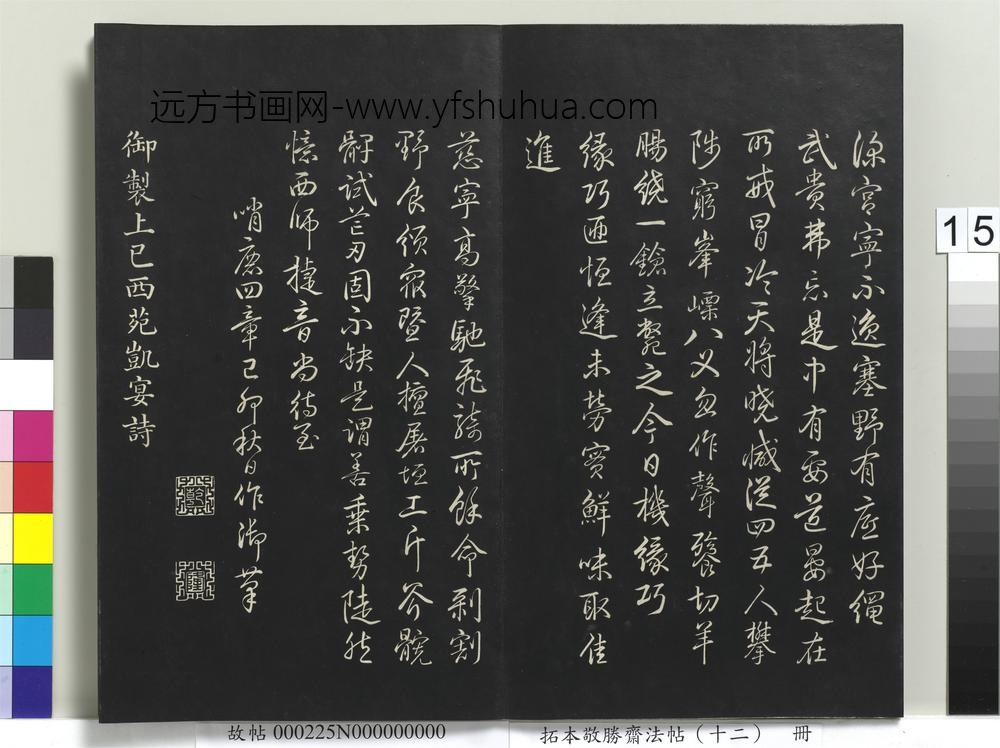 深宮寧不逸塞野有底好繩
武貴弗忘是中有要道晏起在
所戒冒冷天將曉減從四五人攀
陟窮峯八叉忽作聲切羊
腸繞一鎗立斃之今日機緣巧
緣巧匪恒逢未勞實鮮味取佳
進
慈寧高擎馳飛騎所餘命剥割
野食頒衆暨人擅屠垣工斤斧髖
髀試芒刃固不缺是謂善乘勢陡然
憶西師捷音尚待至
哨鹿四章己卯秋日作御筆
乾
隆
御製上巳西苑凱宴詩
远方书画网-www.yfshuhua.com
15
故帖 000225N000000000
拓本敬勝齋法帖（十二） 冊